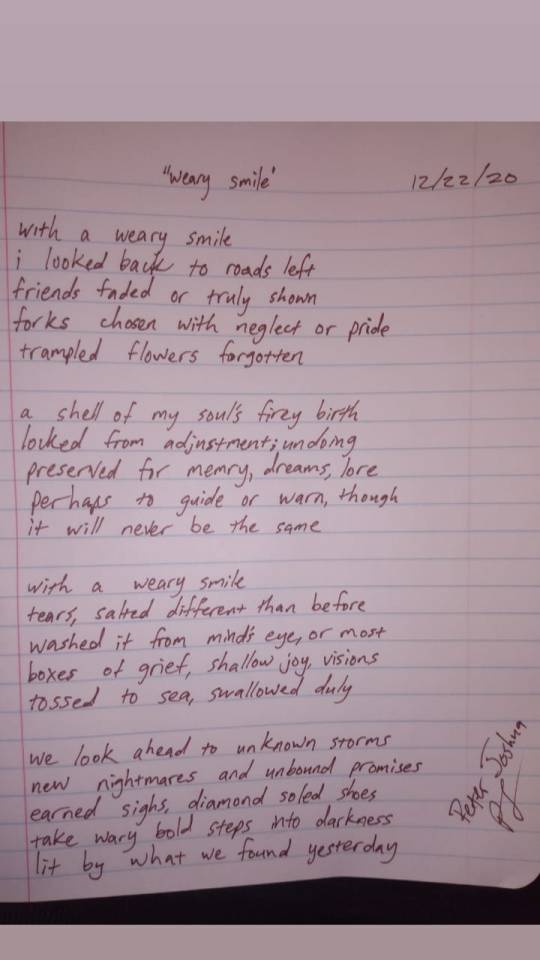 "weary smile" 12/22/20
with a weary smile
i looked back to roads left
friends faded or truly shown
forks chosen with neglect or pride
trampled flowers forgotten
a shell of my soul's firey birth
locked from adjustment; undoing
preserved for memry, dreams, lore
perhaps to guide or warn, though
it will never be the same
with a weary smile
tears, salted different than before
washed it from mind's eye, or most
boxes of grief, shallow joy, visions
tossed to sea, swallowed duly
we look ahead to unknown storms
new nightmares and unbound promises
earned sighs, diamond soled shoes
take wary bold steps into darkness
lit by what we found yesterday
Peter Joshua